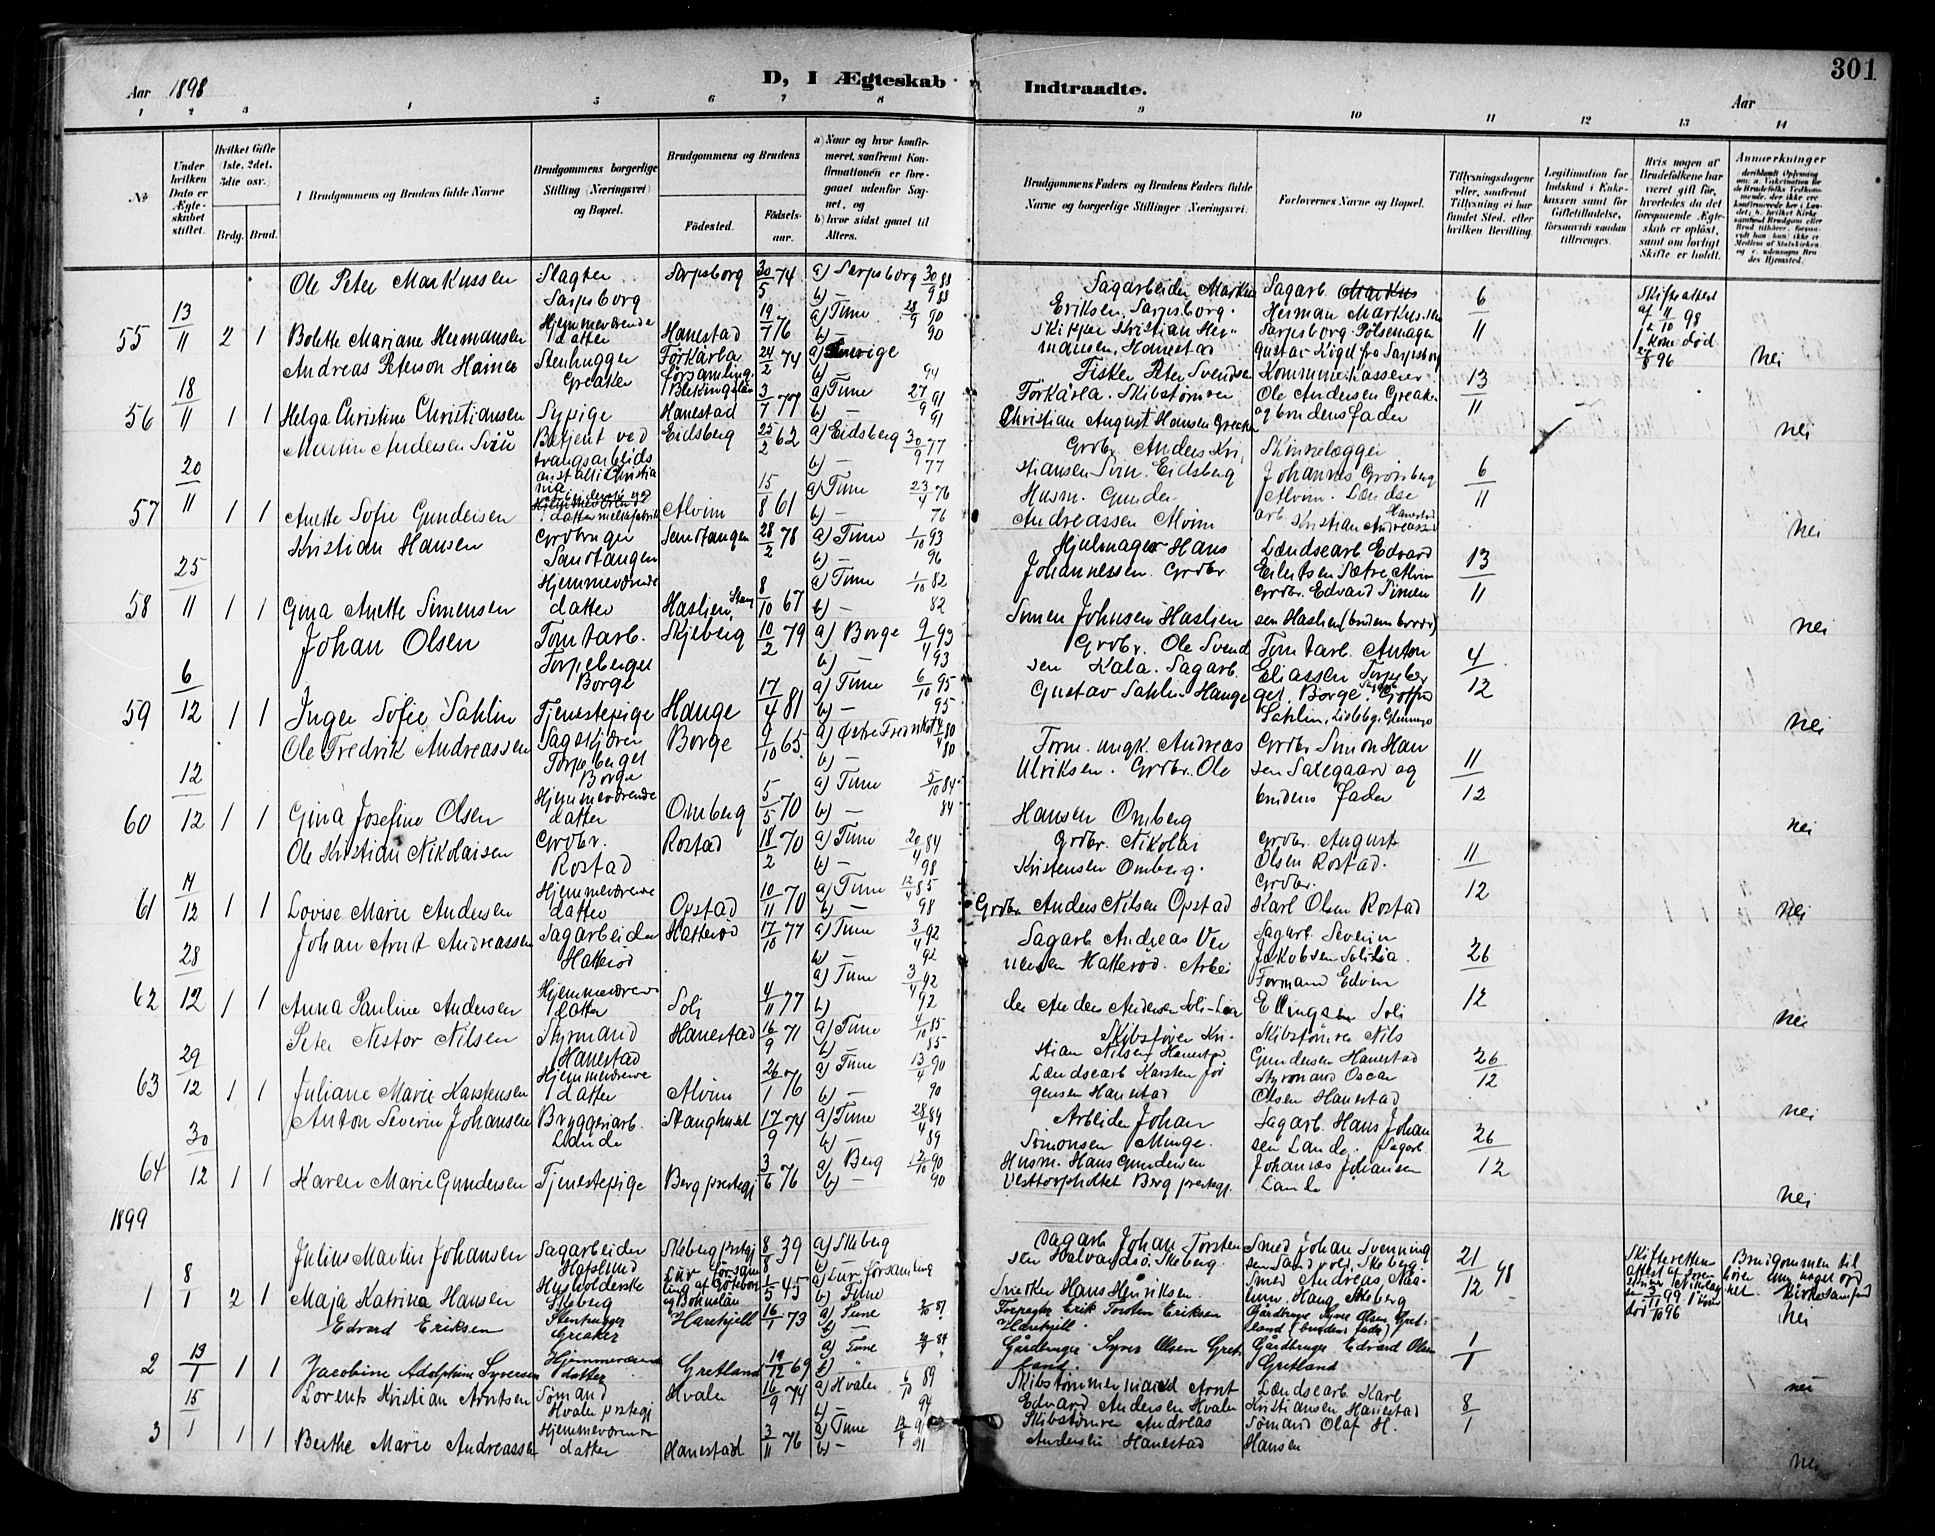 301
Aar 1898
D, I Ægteskab
Indtraadte.
Aar
1 2 3 4 5 6 7 8 9 10 11 12 13 14
№
Under hvilken Dato er Ægteskabet stiftet.
Hvilket Gifte (1ste, 2det, 3die osv.)
Brdg. Brud.
1 Brudgommens og Brudens fulde Navne
Brudgommens borgerlige Stilling (Næringsvei) og Bopæl.
Brudgommens og Brudens
Fødested.
Fødselsaar.
a) Naar og hvor konfirmeret, saafremt Konfirmationen er foregaaet udenfor Sognet, og
b) hvor sidst gaaet til Alters.
Brudgommens Faders og Brudens Faders fulde Navne og borgerlige Stillinger (Næringsvei)
Forlovernes Navne og Bopæl.
Tillysningsdagene eller, saafremt Tillysning ei har fundet Sted, efter hvilken Bevilling.
Legitimation for Indskud i Enkekassen samt for Giftetilladelse, forsaavidt saadan tiltrænges.
Hvis nogen af Brudefolkene har været gift før, hvorledes da det foregaaende Ægteskab er opløst, samt om lovligt Skifte er holdt.
Anmærkninger
55 13/11 2 1
Ole Peter Markussen
Slagter Sarpsborg
Sarpsborg 30/5 74
a) Sarpsborg 30/9 88
Bolette Marjane Hermansen
Hjemmeværende datter
Hanestad 19/7 76
a) Tune 28/9 90
b) — 90
Sagarbeider Markus Eriksen, Sarpsborg.
Skipper Kristian Hermansen, Hanestad
6/11
Skifteattest af 11/10 98
1 kone død 27/8 96
nei
56 18/11 1 1
Andreas Peterson Hainer
Stenhugger Greaker
Førkärla församling Blekingslän 24/2 74
a) Sverige
b) — 94
Helga Christine Christiansen
Sypige
Hanestad 3/7 77
a) Tune 27/9 91
b) — 91
Fisker Peter Svendsen Førkärla. Skibstømrer
Christian August Hansen Greaker
Kommunekasserer Ole Andersen Greaker og brudens fader
13/11
nei
57 20/11 1 1
Martin Andersen Sviu
Betjent ved tvangsarbeidsanstalt i Christiania
Eidsberg 25/2 62
a) Eidsberg 30/9 77
b) — 77
Anette Sofie Gundersen
Alvim 15/8 61
a) Tune 23/4 76
b) — 76
Grdbr. Anders Kristiansen Svin. Eidsberg
Husm. Gunder Andreassen Alvim
Johannes Grønberg Alvim. Lændsearb. Kristian Andreassen Hanestad
6/11
nei
58 25/11 1 1
Kristian Hansen
Grdbruger Sandtangen
Sandtangen 28/2 78
a) Tune 1/10 93
b) — 96
Gina Anette Simensen
Hjemmeværende datter
Haslien 8/10 67
a) Tune 1/10 82
b) — 82
Hjulmager Hans Johannessen. Grdbr.
Simen Johnsen Haslien
Lændsearb. Edvard Eilertsen Sætre Alvim
Grdbr. Edvard Simensen Haslien (brudens broder)
13/11
nei
59 6/12 1 1
Johan Olsen
Tomtarb. Torpeberget Borge
Skjeberg 10/2 79
a) Borge 9/4 93
b) — 93
Inger Sofie Sahlin
Tjenestepige
Hauge 17/4 81
a) Tune 6/10 95
b) — 95
Grdbr. Ole Svendsen Kala. Sagarb.
Gustav Sahlin Hauge
Tomtarb. Anton Eliassen Torpeberget. Borge.
Sahlin,
4/12
nei
60 12/12 1 1
Ole Fredrik Andreassen
Sagskjærer Torpeberget Borge
Borge 9/10 65
a) Østre Fredrikst. 4/4 80
b) — 80
Gina Josefine Olsen
Hjemmeværende datter
Omberg 5/5 70
a) Tune 5/10 84
b) — 84
Form. ungk. Andreas Ulriksen. Grdbr. Ole Hansen Omberg
Grdbr. Simon Hansen Saxegaard og brudens fader
11/12
nei
61 14/12 1 1
Ole Kristian Nikolaisen
Grdbr. Rostad
Rostad 18/2 70
a) Tune 20/4 84
b) — 98
Lovise Marie Andersen
Hjemmeværende datter
Opstad 10/11 70
a) Tune 12/4 85
b) — 98
Grdbr. Nikolai Kristensen Omberg.
Grdbr. Anders Nilsen Opstad
Grdbr. August Olsen Rostad.
Grdbr. Karl Olsen Rostad
11/12
nei
62 28/12 1 1
Johan Arnt Andreassen
Sagarbeider Hatterød
Hatterød 17/10 77
a) Tune 3/4 92
b) — 92
Anna Pauline Andersen
Hjemmeværende datter
Soli 4/11 77
a) Tune 3/4 92
b) 92
Sagarb. Andreas Vernersen Hatterød. Arbeider Anders Andersen Soli-
Sagarb. Severin Jakobsen Solilia.
Formand Edvin Ellingsen Soli
26/12
nei
63 29/12 1 1
Peter Nestor Nilsen
Styrmand Hanestad
Hanestad 16/9 71
a) Tune 4/10 85
b) 85
Juliane Marie Karstensen
Hjemmeværende datter
Alvim 26/1 76
a) Tune 13/4 90
b) — 90
Skibsfører Kristian Nilsen Hanestad
Lændsearb. Karsten Jørgensen Hanestad
Skibstømrer Nils Gundersen Hanestad
Styrmand Oscar Olsen Hanestad
26/12
nei
64 30/12 1 1
Anton Severin Johansen
Bryggeriarb. Lande
Stanghuset 17/9 74
a) Tune 28/4 89
b) — 89
Karen Marie Gundersen
Tjenestepige
Berg prestegj 3/6 76
a) Berg 12/10 90
b) — 90
Arbeider Johan Simonsen Minge.
Husm. Hans Gundersen Vesttorpholtet Berg prestegj.
Sagarb. Hans Johansen Lande. Sagarb. Johannes Johansen Lande
26/12
nei
1899
1 8/1 2 1
Julius Martin Johansen
Sagarbeider Hafslund
Skeberg prstgj 8/8 39
a) Skeberg
Maja Katrina Hansen
Husholderske Skeberg
Lur församling af Göteborg og Bohuslän 1/5 45
a) Lur församling
b) Tune
Sagarb. Johan Torstensen Halvandsö. Skeberg.
Snedker Hans Henriksen.
Smed Johan Svenningsen Sandvold, Skeberg.
Smed Andreas Haug Skeberg
21/12 98
Brudgommen til
nei
2 13/1 1 1
Edvard Eriksen
Stenhugger Greaker
Harekjell 16/1 73
a) Tune 2/10 87
Jacobine Adolphine Syversen
Hjemmeværende datter
Gretland 19/12 69
a) Tune 84
Erik Torsten Eriksen Harekjell.
Gårdbruger Syver Olsen Gretland.
Gårdbruger Syver Olsen Gretland (brudens fader)
Gårdbruger Edvard Olsen Gretland
1/1
nei
3 15/1 1 1
Lorents Kristian Arntsen
Sømand Hvaler prstegj
Hvaler 16/9 74
a) Hvaler 6/10 89
b) — 94
Berthe Marie Andreassen
Hjemmeværende datter
Hanestad 3/11 76
a) Tune 91
b) — 91
Skibstømmermand Arnt Edvard Andersen Hvaler
Skibstømrer Andreas Andersen Hanestad
Lændsearb. Karl Kristiansen Hanestad
Sømand Olaf H. Hansen
8/1
nei